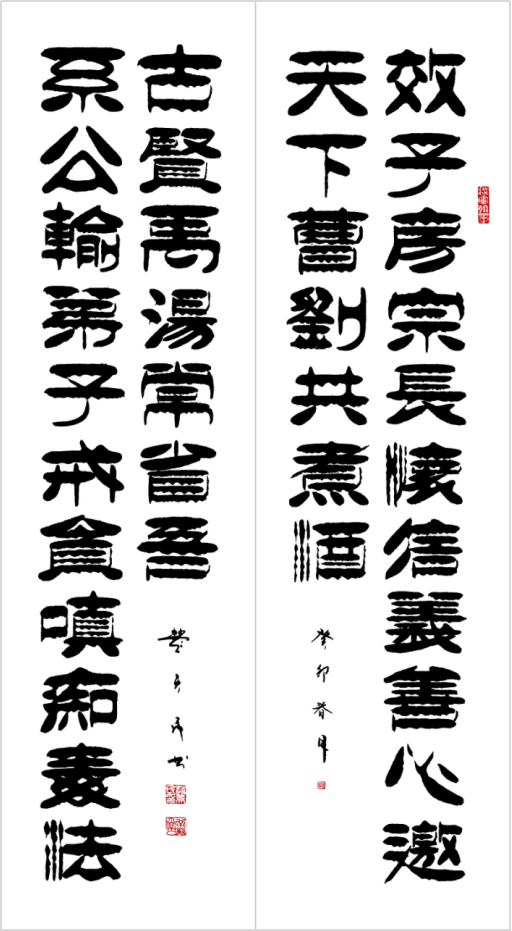 效子房宗長懷信義善心邀
天下曹劉共煮酒
癸卯春月
系公輸弟子戒貪嗔痴法
古賢禹湯常省吾
书